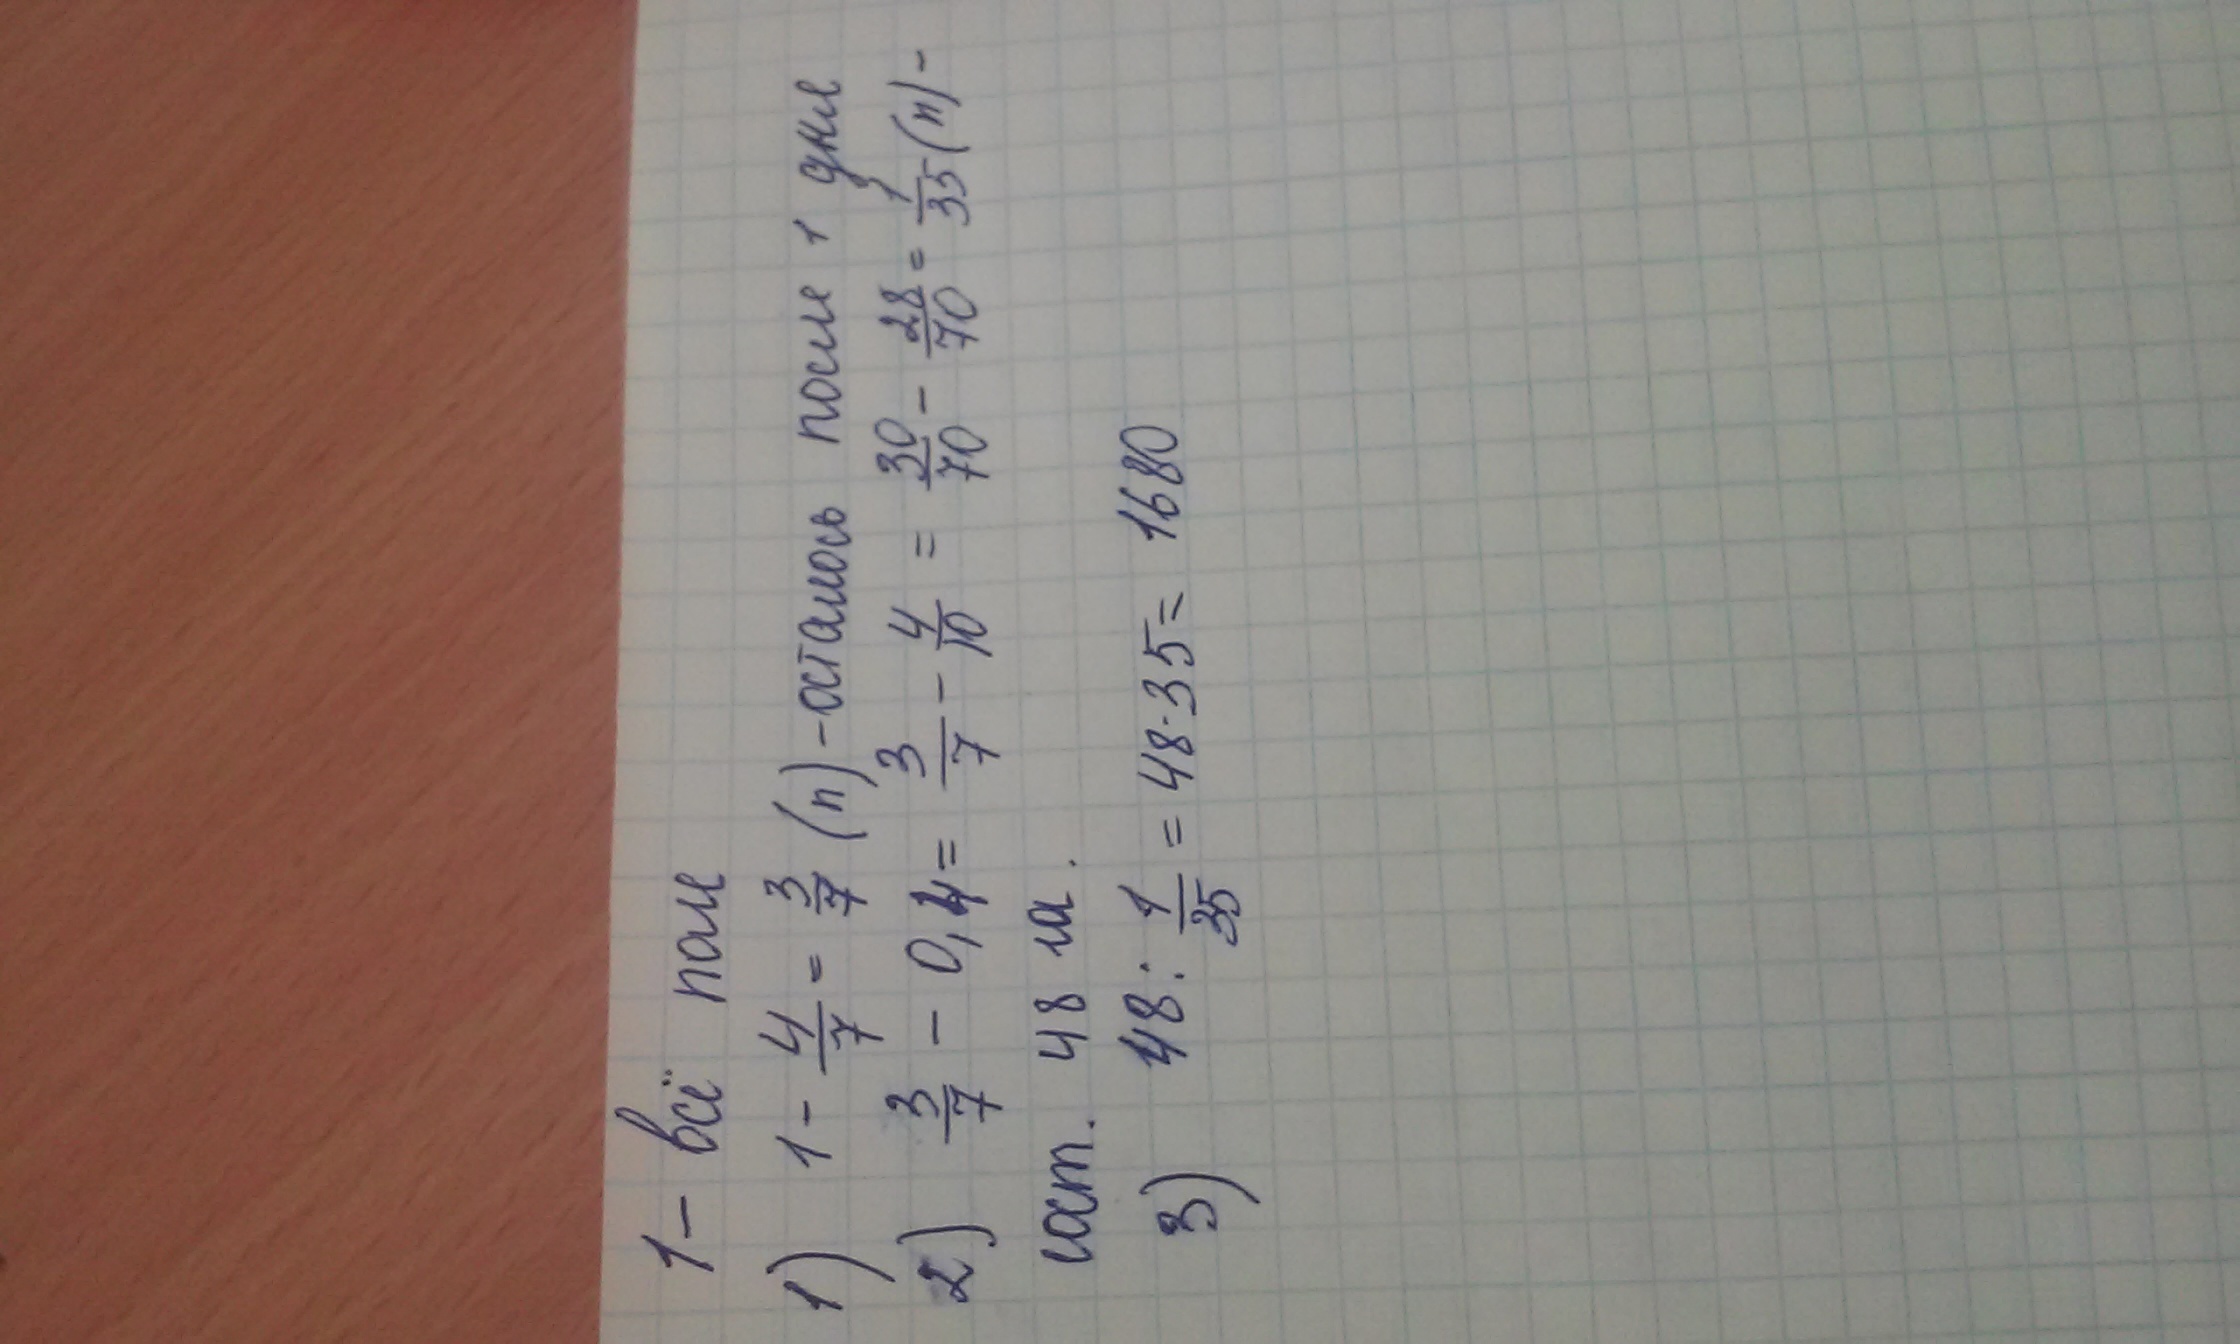 1 - всё поле
1) 1 - 4/7 = 3/7 (п) - осталось после 1 дня
2) 3/7 - 0,4 = 3/7 - 4/10 = 30/70 - 28/70 = 1/35 (п) -
сост. 48 га.
3) 48 : 1/35 = 48 · 35 = 1680